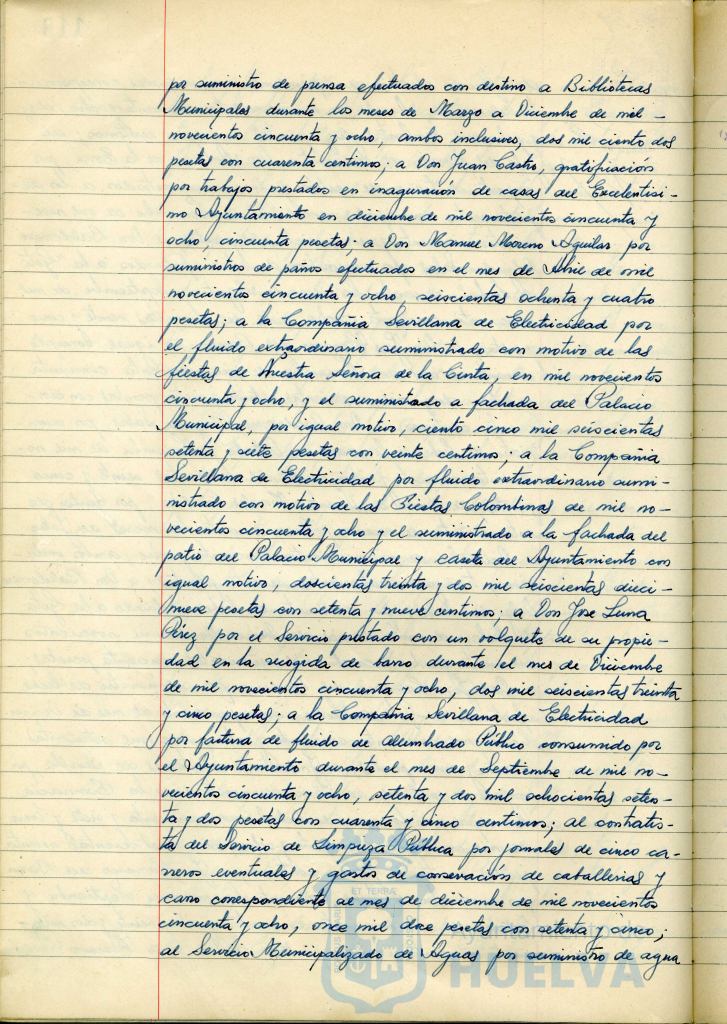 por suministro de prensa efectuados con destino a Bibliotecas
Municipales durante los meses de Marzo a Diciembre de mil-
novecientos cincuenta y ocho, ambos inclusives, dos mil ciento dos
pesetas con cuarenta centimos; a Don Juan Castro, gratificación
por trabajos prestados en inaguración de casas del Excelentisi-
mo Ayuntamiento en diciembre de mil novecientos cincuenta y
ocho, cincuenta pesetas; a Don Manuel Moreno Aguilar por
suministros de paños efectuados en el mes de Abril de mil
novecientos cincuenta y ocho, seiscientas ochenta y cuatro
pesetas; a la Compañia Sevillana de Electricidad por
el fluido extraordinario suministrado con motivo de las
fiestas de Nuestra Señora de la Cinta, en mil novecientos
cincuenta y ocho, y el suministrado a fachada del Palacio
Municipal, por igual motivo, ciento cinco mil seiscientas
setenta y siete pesetas con veinte centimos; a la Compañia
Sevillana de Electricidad por fluido extraordinario sumi-
nistrado con motivo de las Fiestas Colombinas de mil no-
vecientos cincuenta y ocho y el suministrado a la fachada del
patio del Palacio Municipal y caseta del Ayuntamiento con
igual motivo, doscientas treinta y dos mil seiscientas dieci-
nueve pesetas con setenta y nueve centimos; a Don Jose Luna
Pérez por el Servicio prestado con un volquete de su propie-
dad en la recogida de barro durante el mes de Diciembre
de mil novecientos cincuenta y ocho, dos mil seiscientas treinta
y cinco pesetas; a la Compañia Sevillana de Electricidad
por factura de fluido de Alumbrado Público consumido por
el Ayuntamiento durante el mes de Septiembre de mil no-
vecientos cincuenta y ocho, setenta y dos mil ochocientas seten-
ta y dos pesetas con cuarenta y cinco centimos; al contratis-
ta del Servicio de Limpieza Pública por jornales de cinco ca-
rreros eventuales y gastos de conservación de caballerias y
carro correspondiente al mes de diciembre de mil novecientos
cincuenta y ocho, once mil doce pesetas con setenta y cinco;
al Servicio Municipalizado de Aguas por suministro de agua
HUELVA